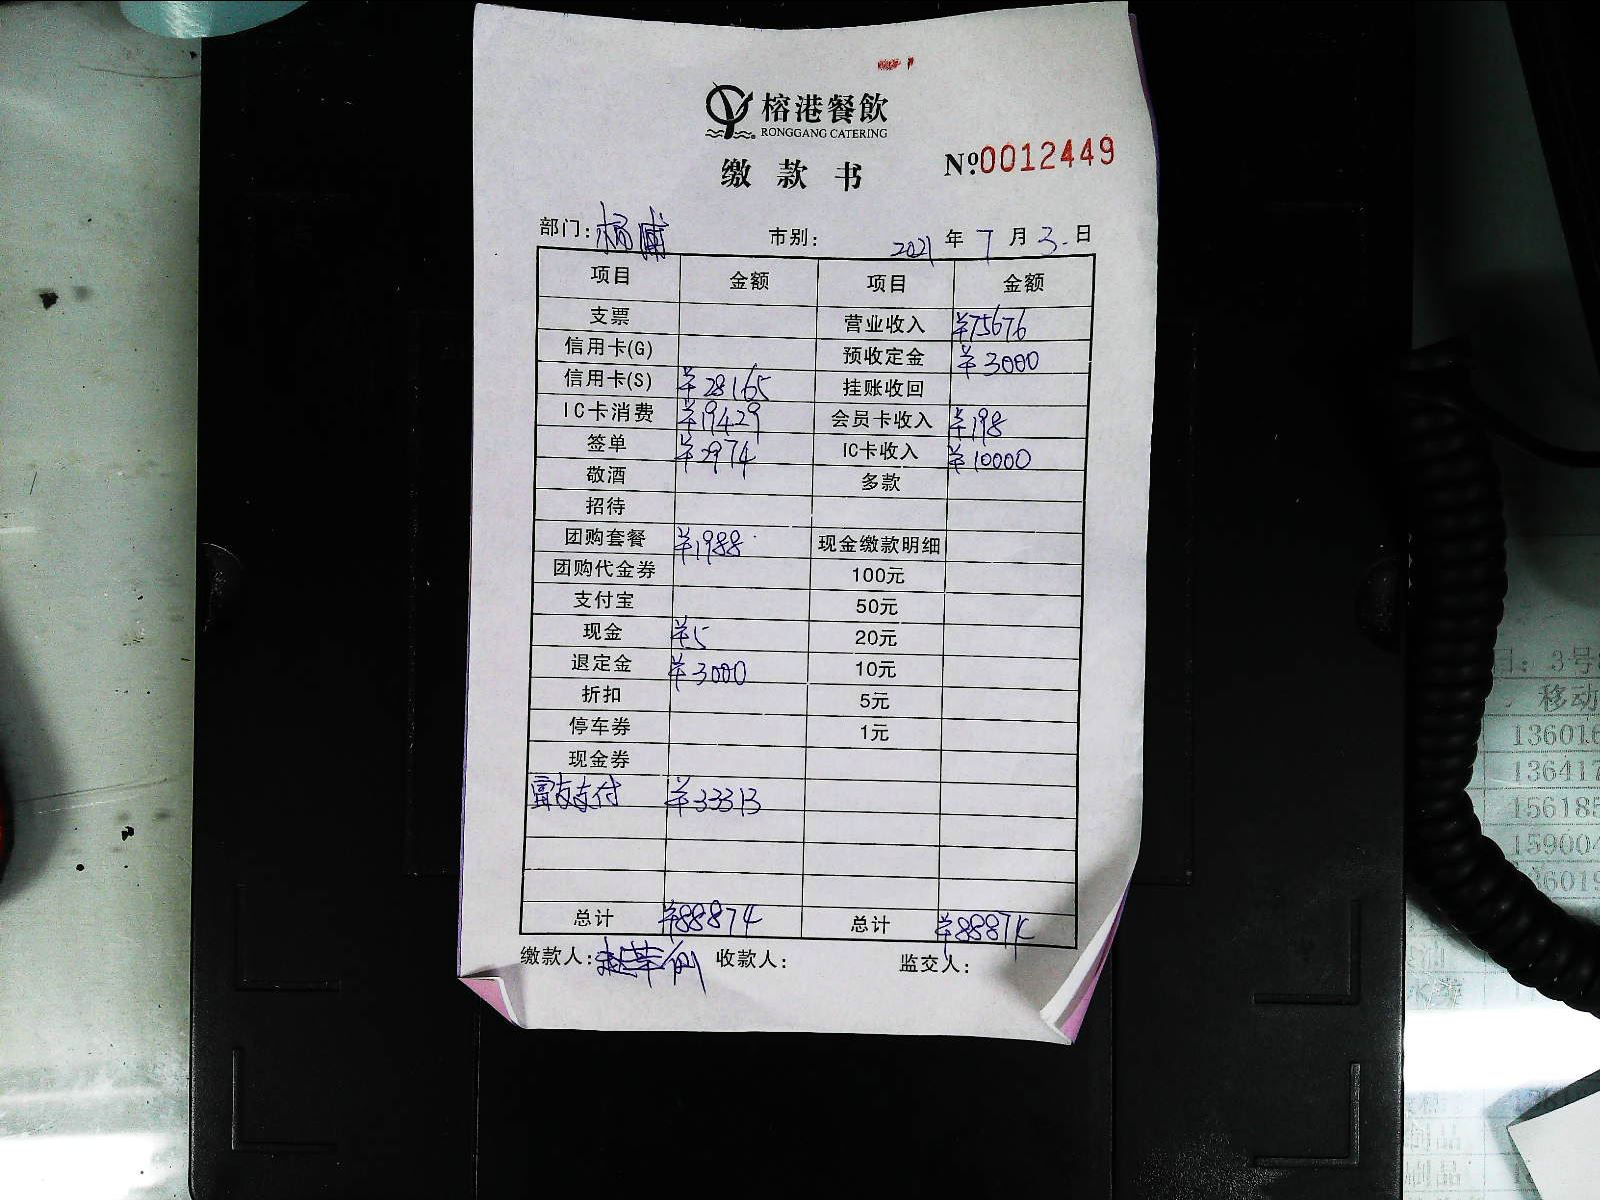 榕港餐飲
RONGGANG CATERING
缴款书
Nº:0012449
部门: 杨浦 市别: 2021 年 7 月 3. 日
项目 金额 项目 金额
支票 营业收入 ¥75676
信用卡(G) 预收定金 ¥3000
信用卡(S) ¥28165 挂账收回
IC卡消费 ¥19429 会员卡收入 ¥198
签单 ¥2974 IC卡收入 ¥10000
敬酒 多款
招待
团购套餐 ¥1988 现金缴款明细
团购代金券 100元
支付宝 50元
现金 ¥5 20元
退定金 ¥3000 10元
折扣 5元
停车券 1元
现金券
富友支付 ¥33313
总计 ¥88874 总计 ¥88874
缴款人: 收款人: 监交人:
目: 3号
移动
136016
136417
15618
15900